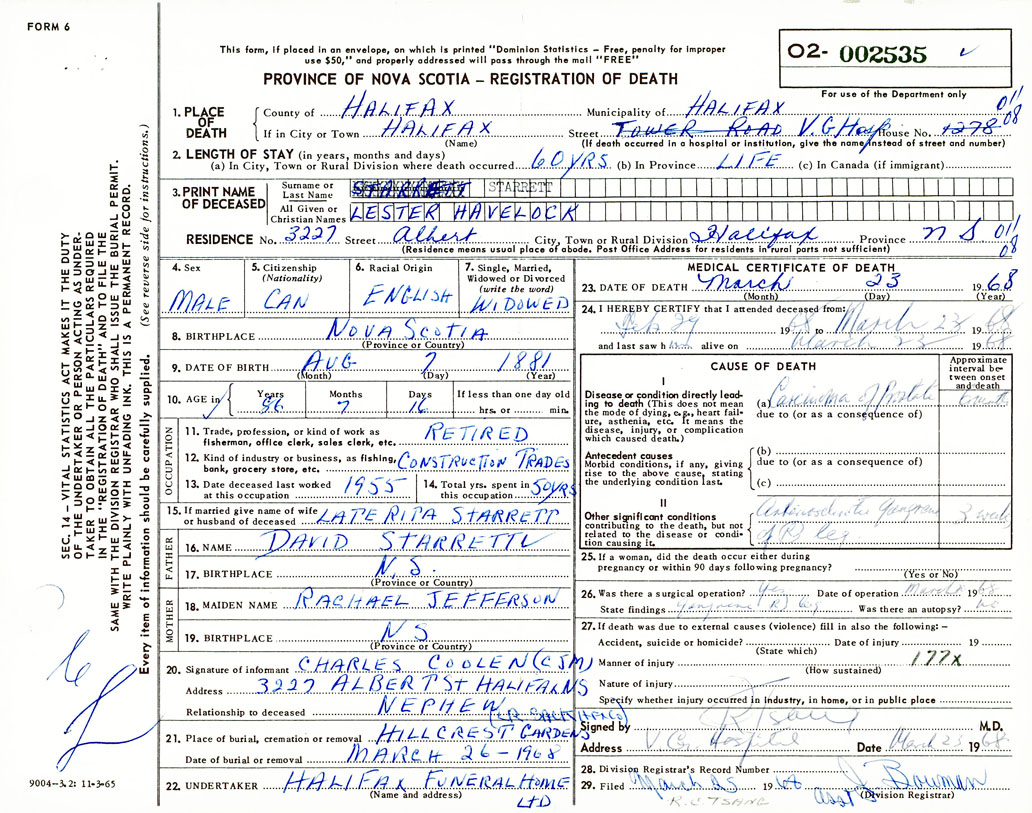 FORM 6
This form, if placed in an envelope, on which is printed "Dominion Statistics – Free, penalty for improper
use $50," and properly addressed will pass through the mail "FREE"
PROVINCE OF NOVA SCOTIA – REGISTRATION OF DEATH
02- 002535
For use of the Department only
1. PLACE OF DEATH County of HALIFAX Municipality of HALIFAX 011 08
If in City or Town HALIFAX Street TOWER ROAD V.G Hosp House No. 1278
(Name) (If death occurred in a hospital or institution, give the name instead of street and number)
2. LENGTH OF STAY (in years, months and days)
(a) In City, Town or Rural Division where death occurred 60 YRS (b) In Province LIFE (c) In Canada (if immigrant)
3. PRINT NAME OF DECEASED Surname or Last Name STARRETT STARRETT
All Given or Christian Names LESTER HAVELOCK
RESIDENCE No. 3227 Street Albert City, Town or Rural Division Halifax Province N S 011 08
(Residence means usual place of abode. Post Office Address for residents in rural parts not sufficient)
4. Sex MALE
5. Citizenship (Nationality) CAN
6. Racial Origin ENGLISH
7. Single, Married, Widowed or Divorced (write the word) WIDOWED
8. BIRTHPLACE NOVA SCOTIA
(Province or Country)
9. DATE OF BIRTH AUG 7 1881
(Month) (Day) (Year)
10. AGE in Years 86 Months 7 Days 16 If less than one day old hrs. or min.
OCCUPATION
11. Trade, profession, or kind of work as fisherman, office clerk, sales clerk, etc. RETIRED
12. Kind of industry or business, as fishing, bank, grocery store, etc. CONSTRUCTION TRADES
13. Date deceased last worked at this occupation 1955
14. Total yrs. spent in this occupation 50 YRS
15. If married give name of wife or husband of deceased LATE RITA STARRETT
FATHER
16. NAME DAVID STARRETT
17. BIRTHPLACE N.S.
(Province or Country)
MOTHER
18. MAIDEN NAME RACHAEL JEFFERSON
19. BIRTHPLACE N S
(Province or Country)
20. Signature of informant CHARLES COOLEN (CJM)
Address 3227 ALBERT St HALIFAX NS
Relationship to deceased NEPHEW
21. Place of burial, cremation or removal HILLCREST GARDENS
Date of burial or removal MARCH 26 – 1968
22. UNDERTAKER HALIFAX FUNERAL HOME LTD
(Name and address)
MEDICAL CERTIFICATE OF DEATH
23. DATE OF DEATH March 23 1968
(Month) (Day) (Year)
24. I HEREBY CERTIFY that I attended deceased from:
Feb 29 1968 to March 23 1968
and last saw him alive on March 23 1968
CAUSE OF DEATH
Approximate interval between onset and death
I
Disease or condition directly leading to death (This does not mean the mode of dying, e.g., heart failure, asthenia, etc. It means the disease, injury, or complication which caused death.)
(a) Carcinoma of Prostate
due to (or as a consequence of)
Antecedent causes
Morbid conditions, if any, giving rise to the above cause, stating the underlying condition last.
(b)
due to (or as a consequence of)
(c)
II
Other significant conditions
contributing to the death, but not related to the disease or condition causing it.
Gangrene 3 weeks
of R) leg
25. If a woman, did the death occur either during
pregnancy or within 90 days following pregnancy?
(Yes or No)
26. Was there a surgical operation? Yes Date of operation March 1968
State findings gangrene R) leg Was there an autopsy? no
27. If death was due to external causes (violence) fill in also the following: –
Accident, suicide or homicide? Date of injury 19
(State which)
Manner of injury 177x
(How sustained)
Nature of injury
Specify whether injury occurred in industry, in home, or in public place
Signed by M.D.
Address V G Hospital Date March 23 1968
28. Division Registrar's Record Number
29. Filed March 25 1968 Bowman
(Division Registrar)
R.C TSANG Asst
SEC. 14 – VITAL STATISTICS ACT MAKES IT THE DUTY
OF THE UNDERTAKER OR PERSON ACTING AS UNDER-
TAKER TO OBTAIN ALL THE PARTICULARS REQUIRED
IN THE "REGISTRATION OF DEATH" AND TO FILE THE
SAME WITH THE DIVISION REGISTRAR WHO SHALL ISSUE THE BURIAL PERMIT.
WRITE PLAINLY WITH UNFADING INK. THIS IS A PERMANENT RECORD.
Every item of information should be carefully supplied. (See reverse side for instructions.)
9004–3.2: 11-3-65